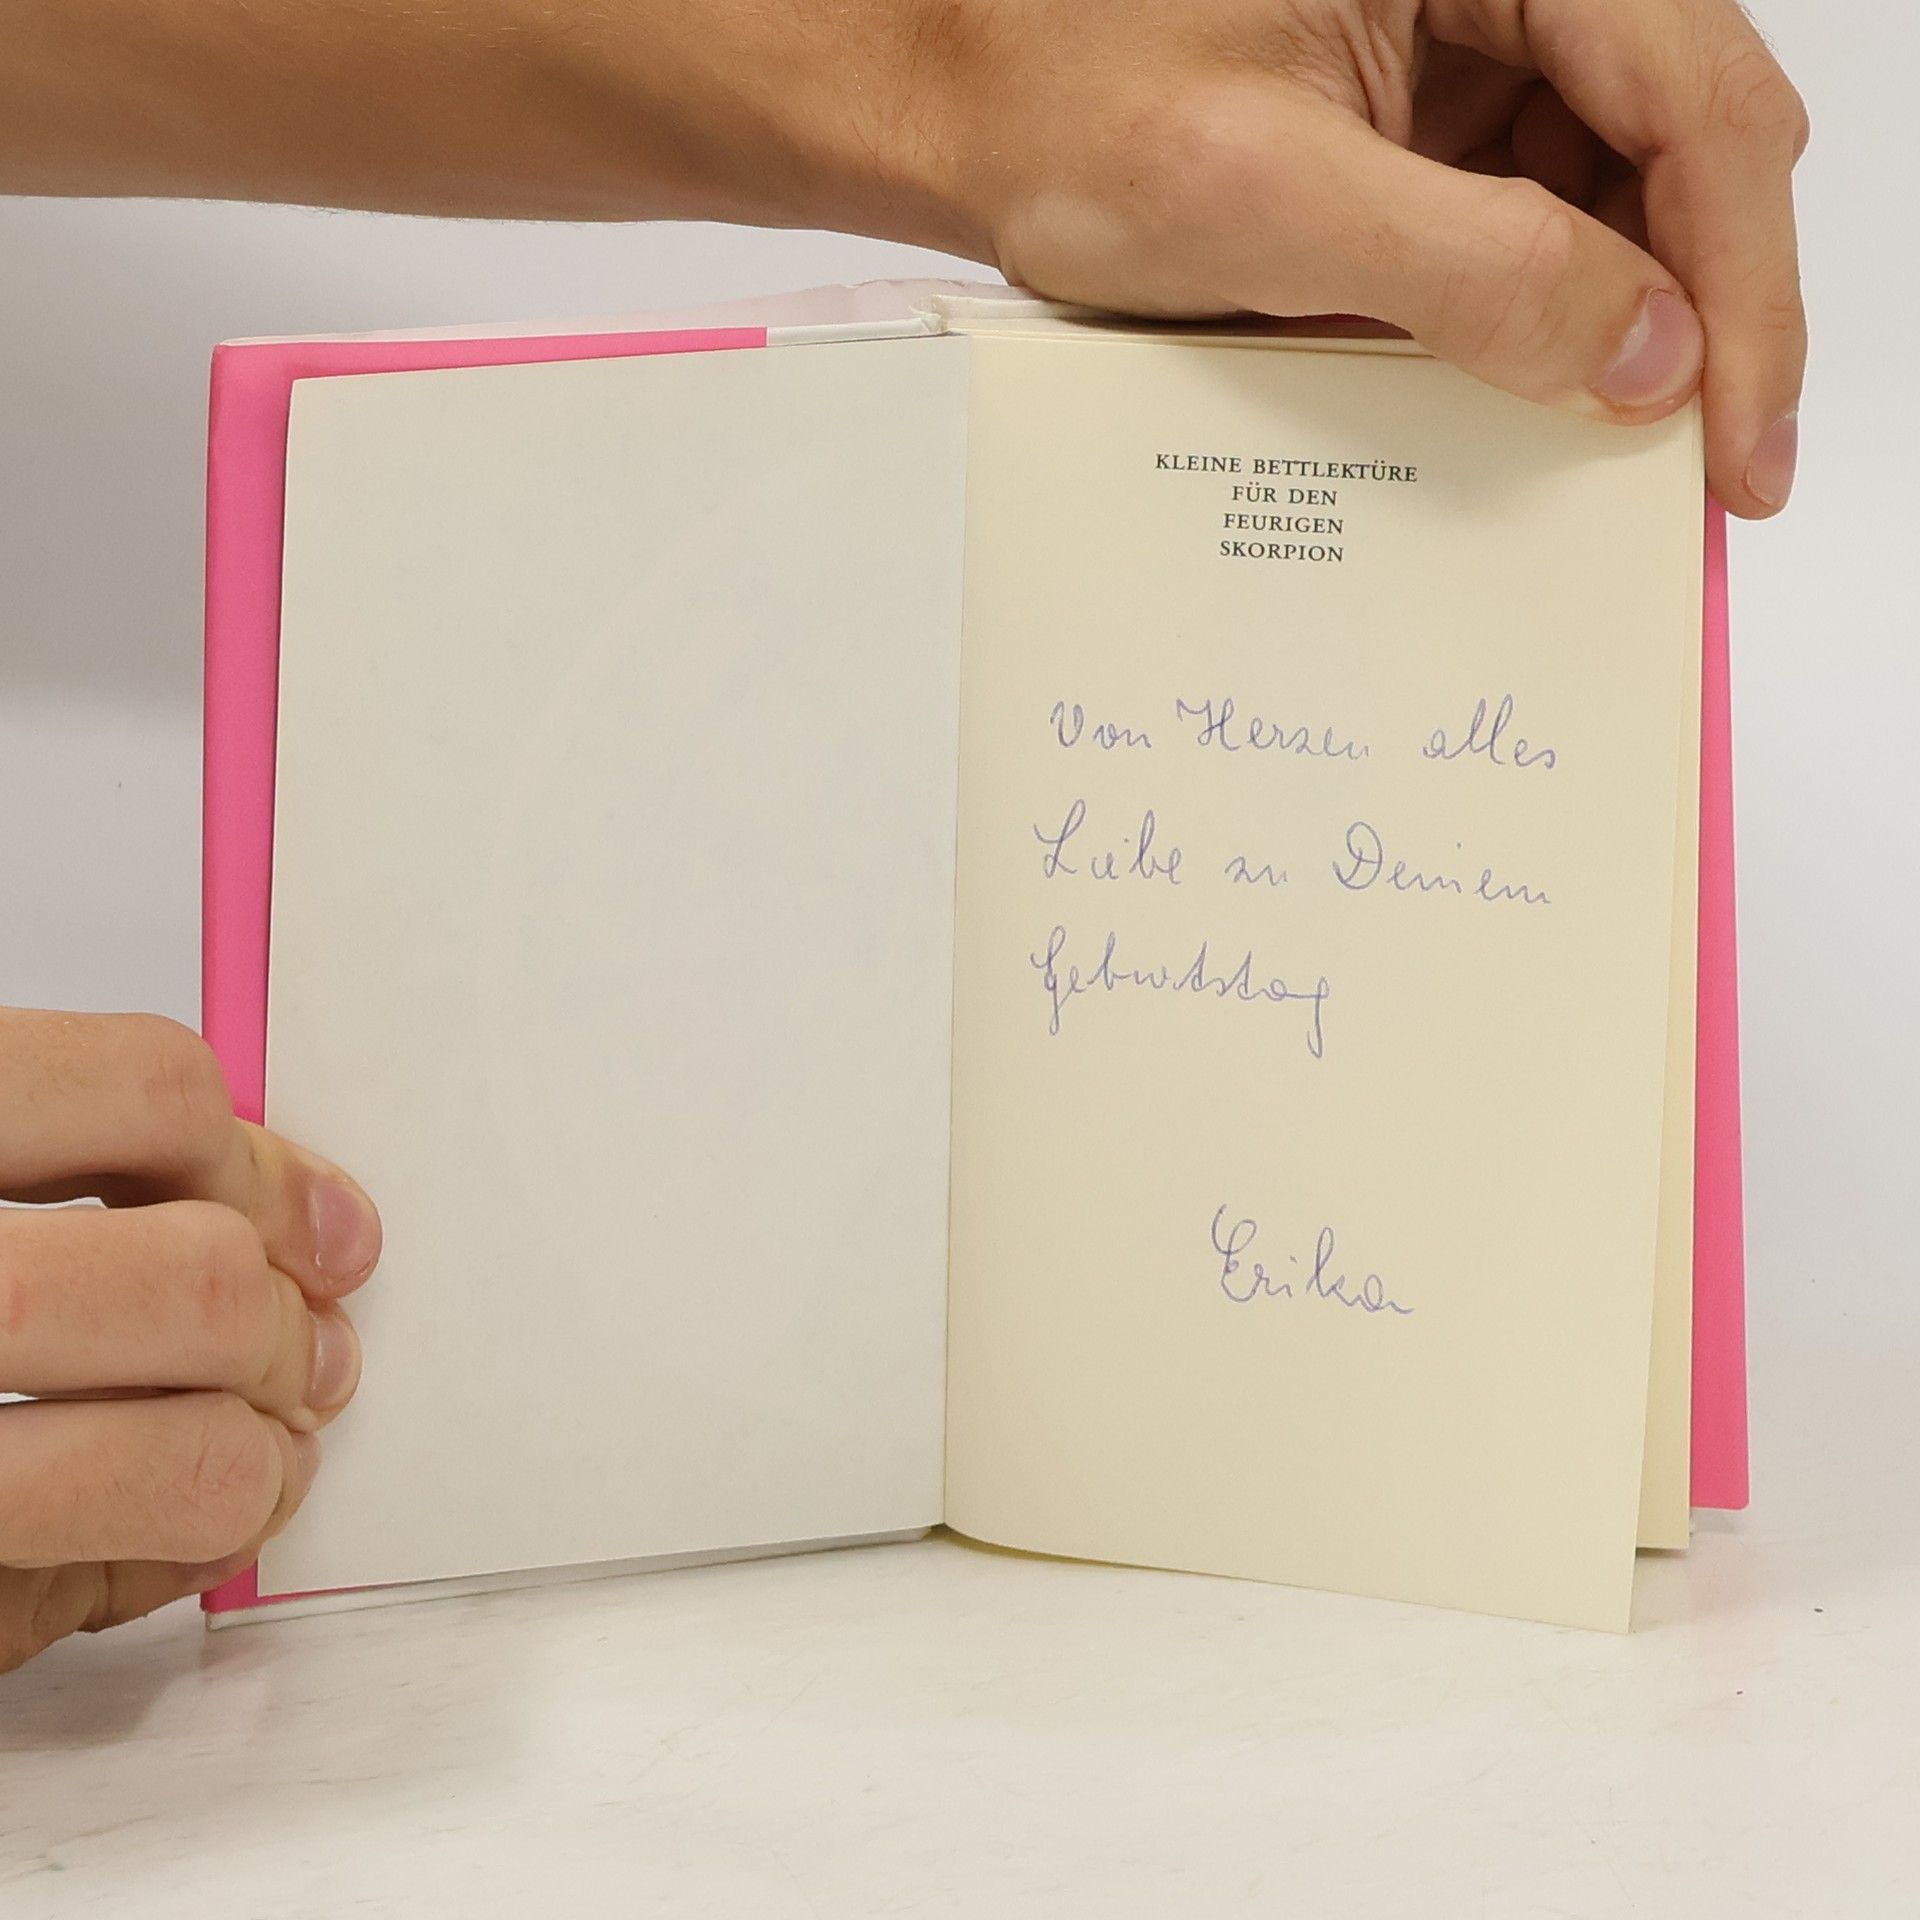 KLEINE BETTLEKTÜRE
FÜR DEN
FEURIGEN
SKORPION
Von Herzen alles
Liebe zu Deinem
Geburtstag
Erika